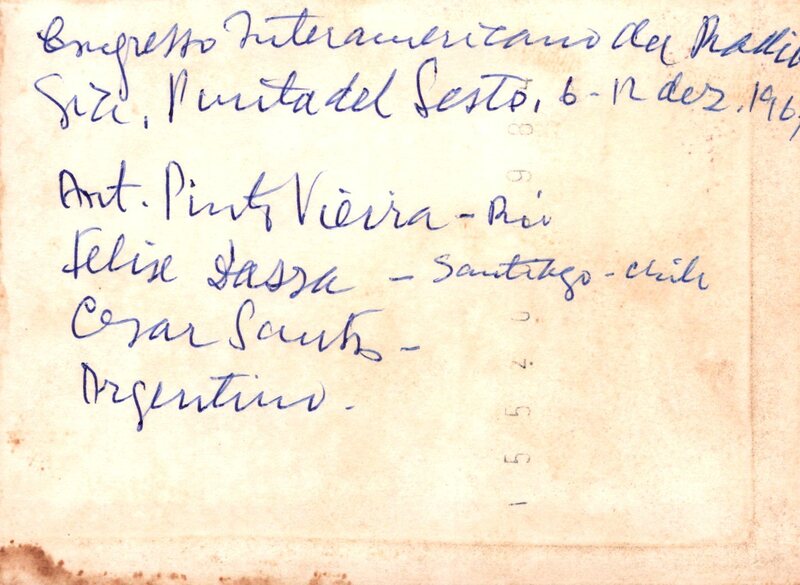 Congresso Interamericano de Radio
gia, Punta del Leste, 6-12 dez. 196
Ant. Pinto Vieira - Rio
Felix Dassa - Santiago - Chile
Cesar Santos -
Argentino.